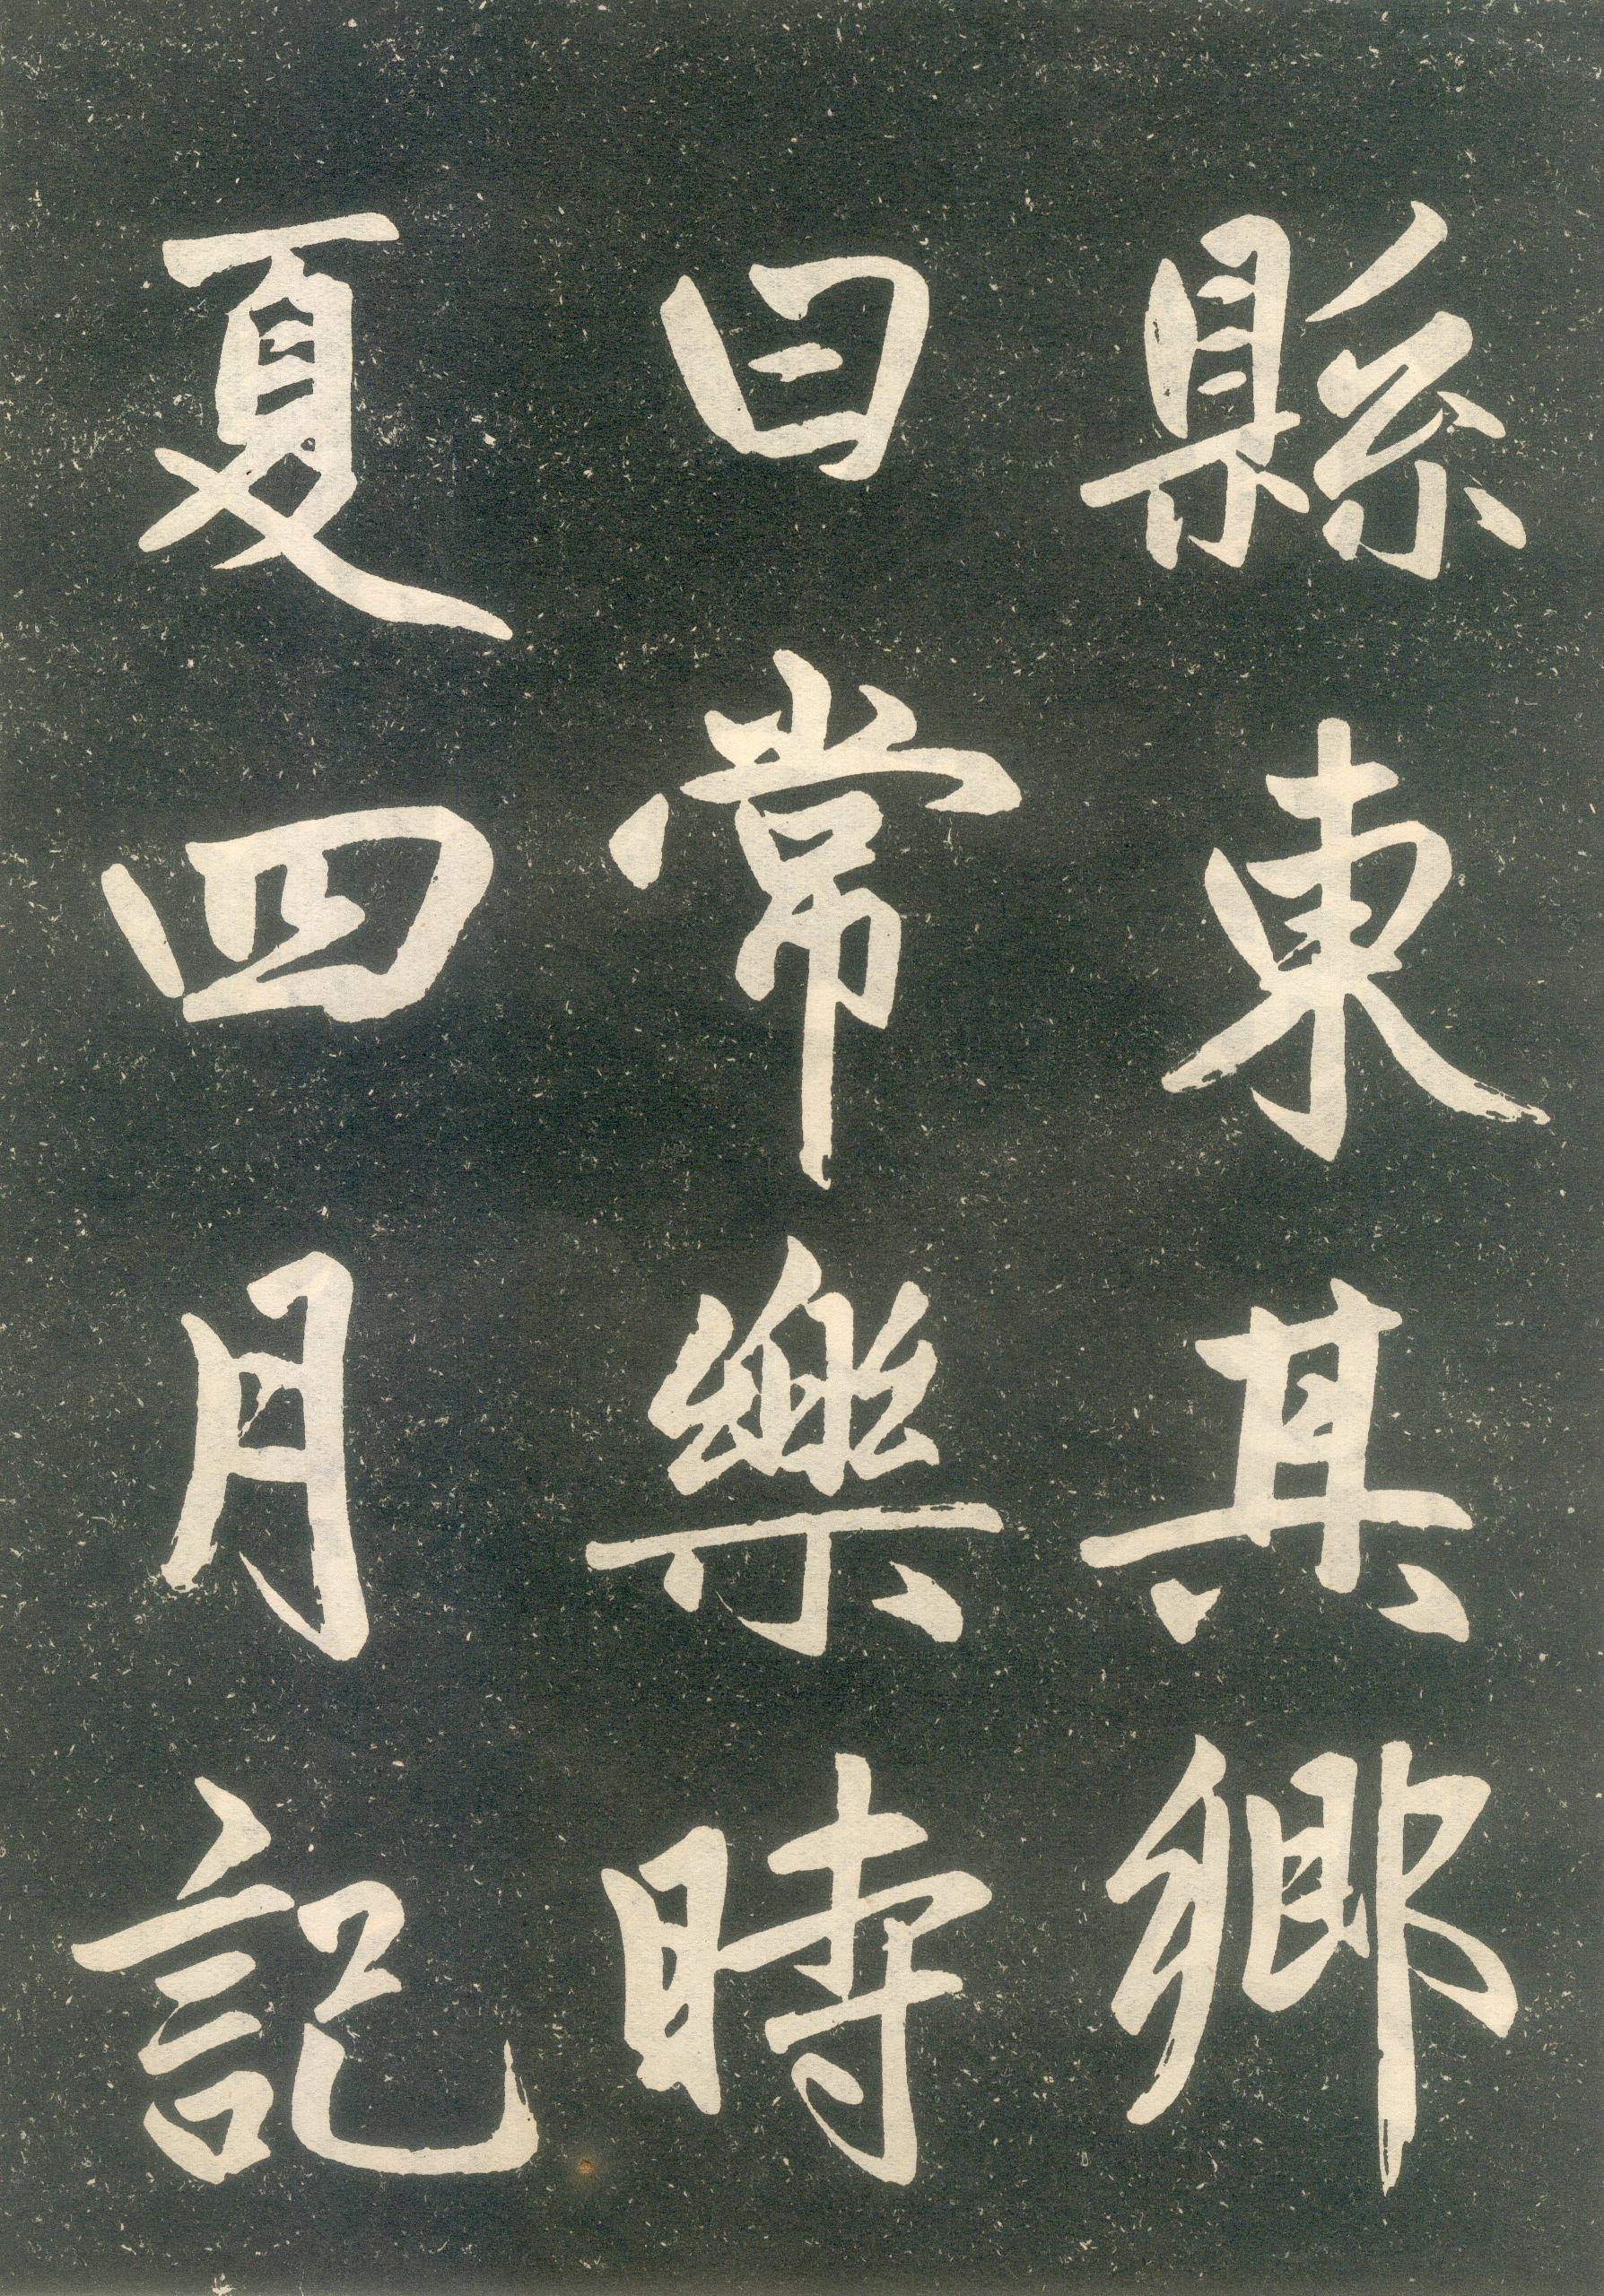 縣東其鄉
曰常樂時
夏四月記